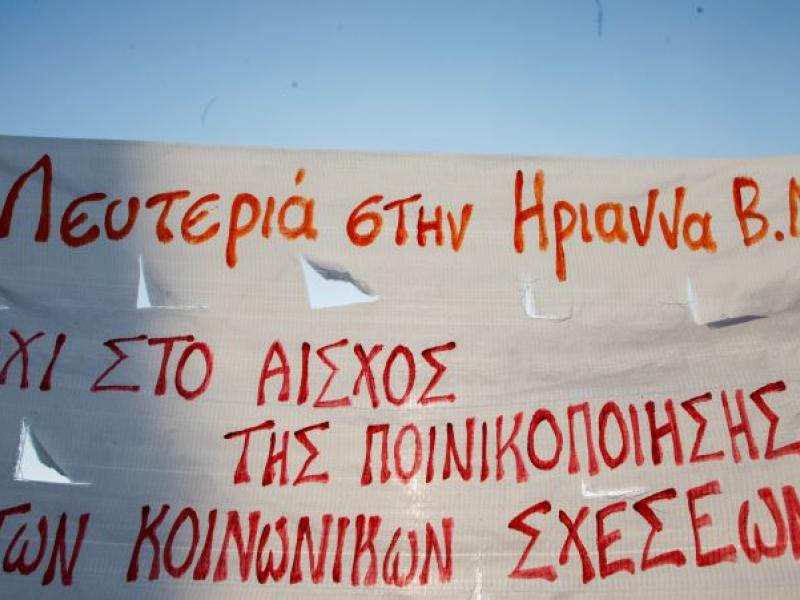 Λευτεριά στην Ηριάννα Β.Λ
ΧΙ ΣΤΟ ΑΙΣΧΟΣ
ΤΗΣ ΠΟΙΝΙΚΟΠΟΙΗΣΗΣ
ΤΩΝ ΚΟΙΝΩΝΙΚΩΝ ΣΧΕΣΕΩΝ